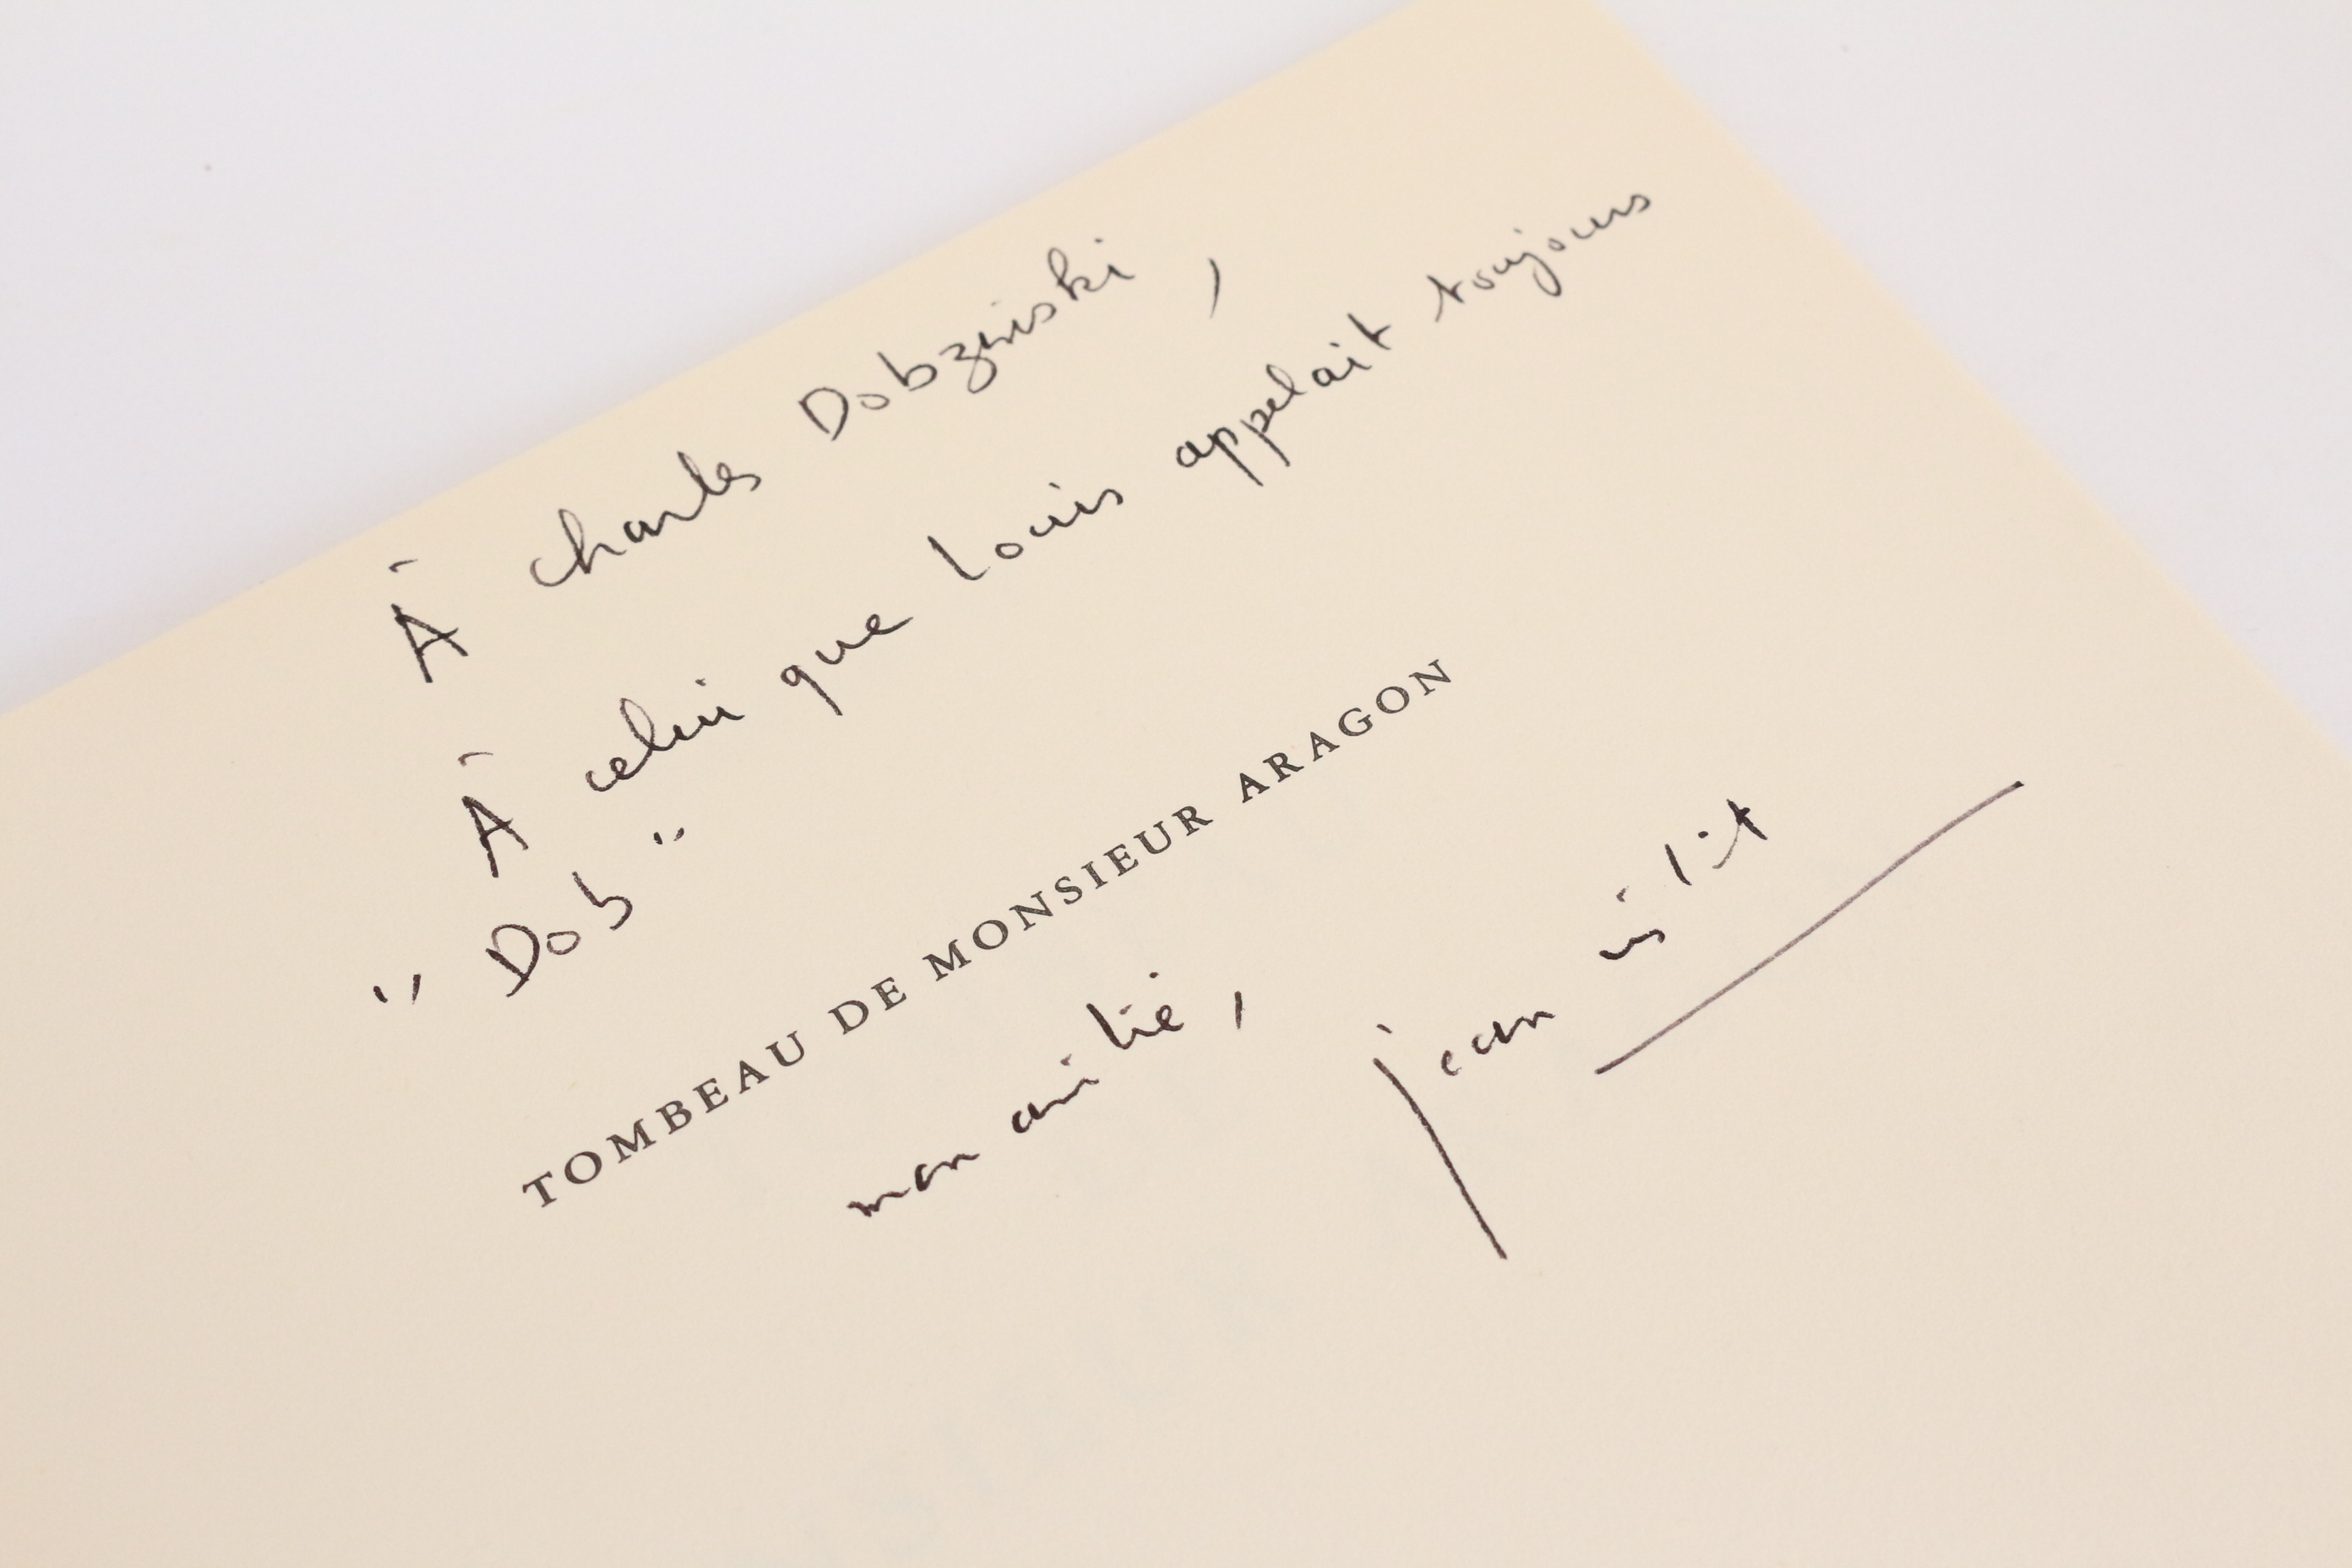 À Charles Dobzinski,
À celui que Louis appelait toujours
"Dob"
TOMBEAU DE MONSIEUR ARAGON
mon amitié,
jean ristat